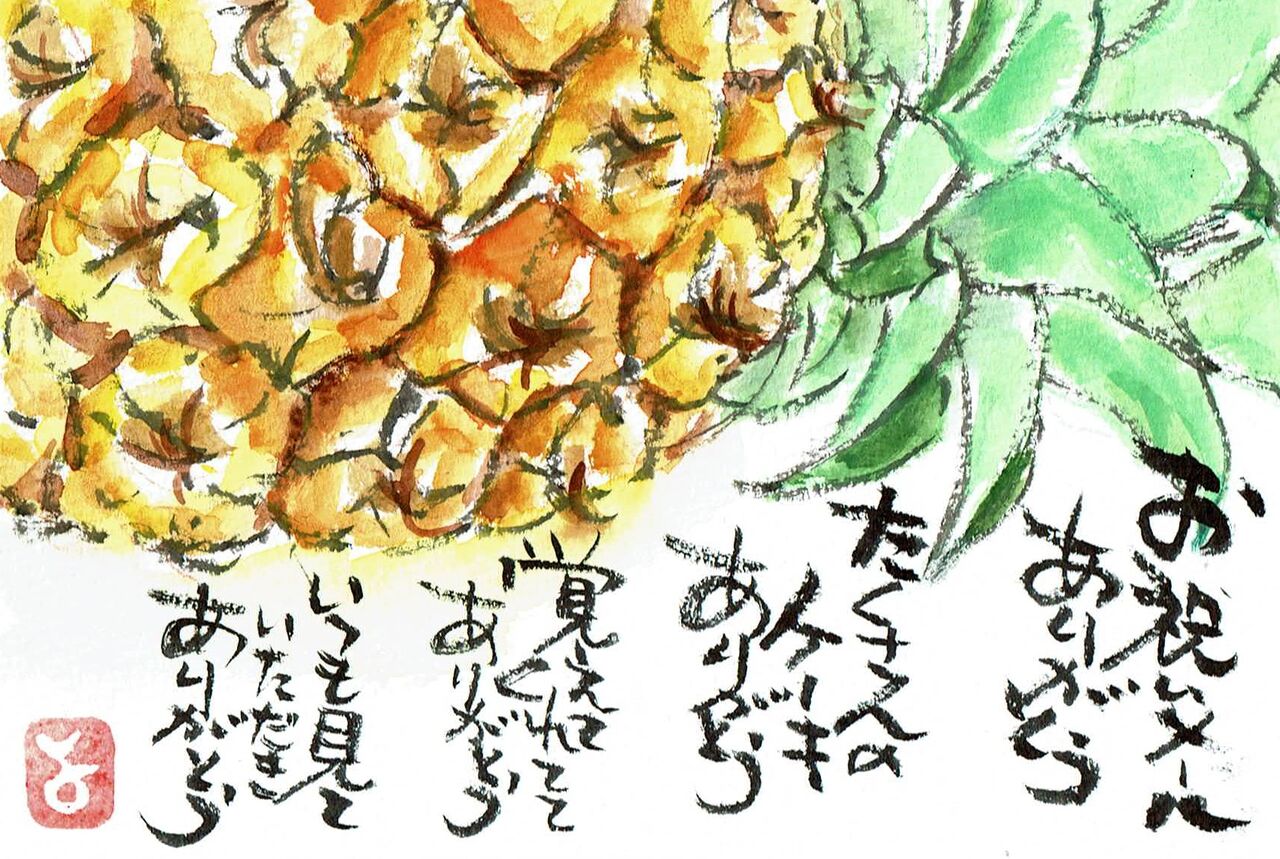 お祝いメール
ありがとう
たくさんの
イイネ
ありがとう
覚えて
くれてて
ありがとう
いつも見て
いただき
ありがとう